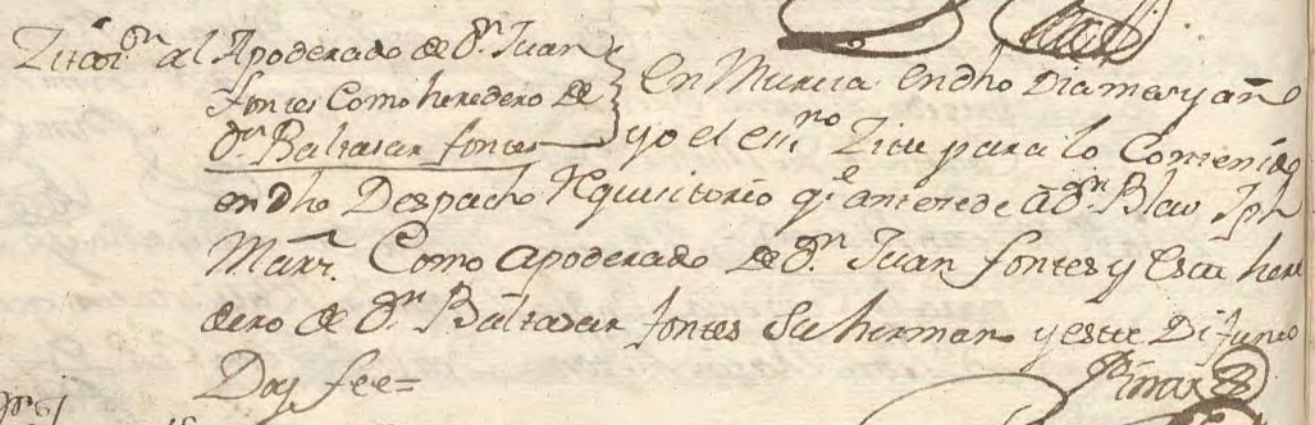 Zitaz.on al Apoderado de Dn. Juan
fontes Como heredero de
Dn. Baltasar fontes
En Murcia en dho Dia mes y año
yo el essno Zite para lo Contenido
en dho Despacho Requisitorio qe. antesede a Dn. Blas Jph
Marz. Como apoderado de Dn. Juan fontes y este here
dero de Dn. Baltasar fontes Su hermano y este Difunto
Doy fee=